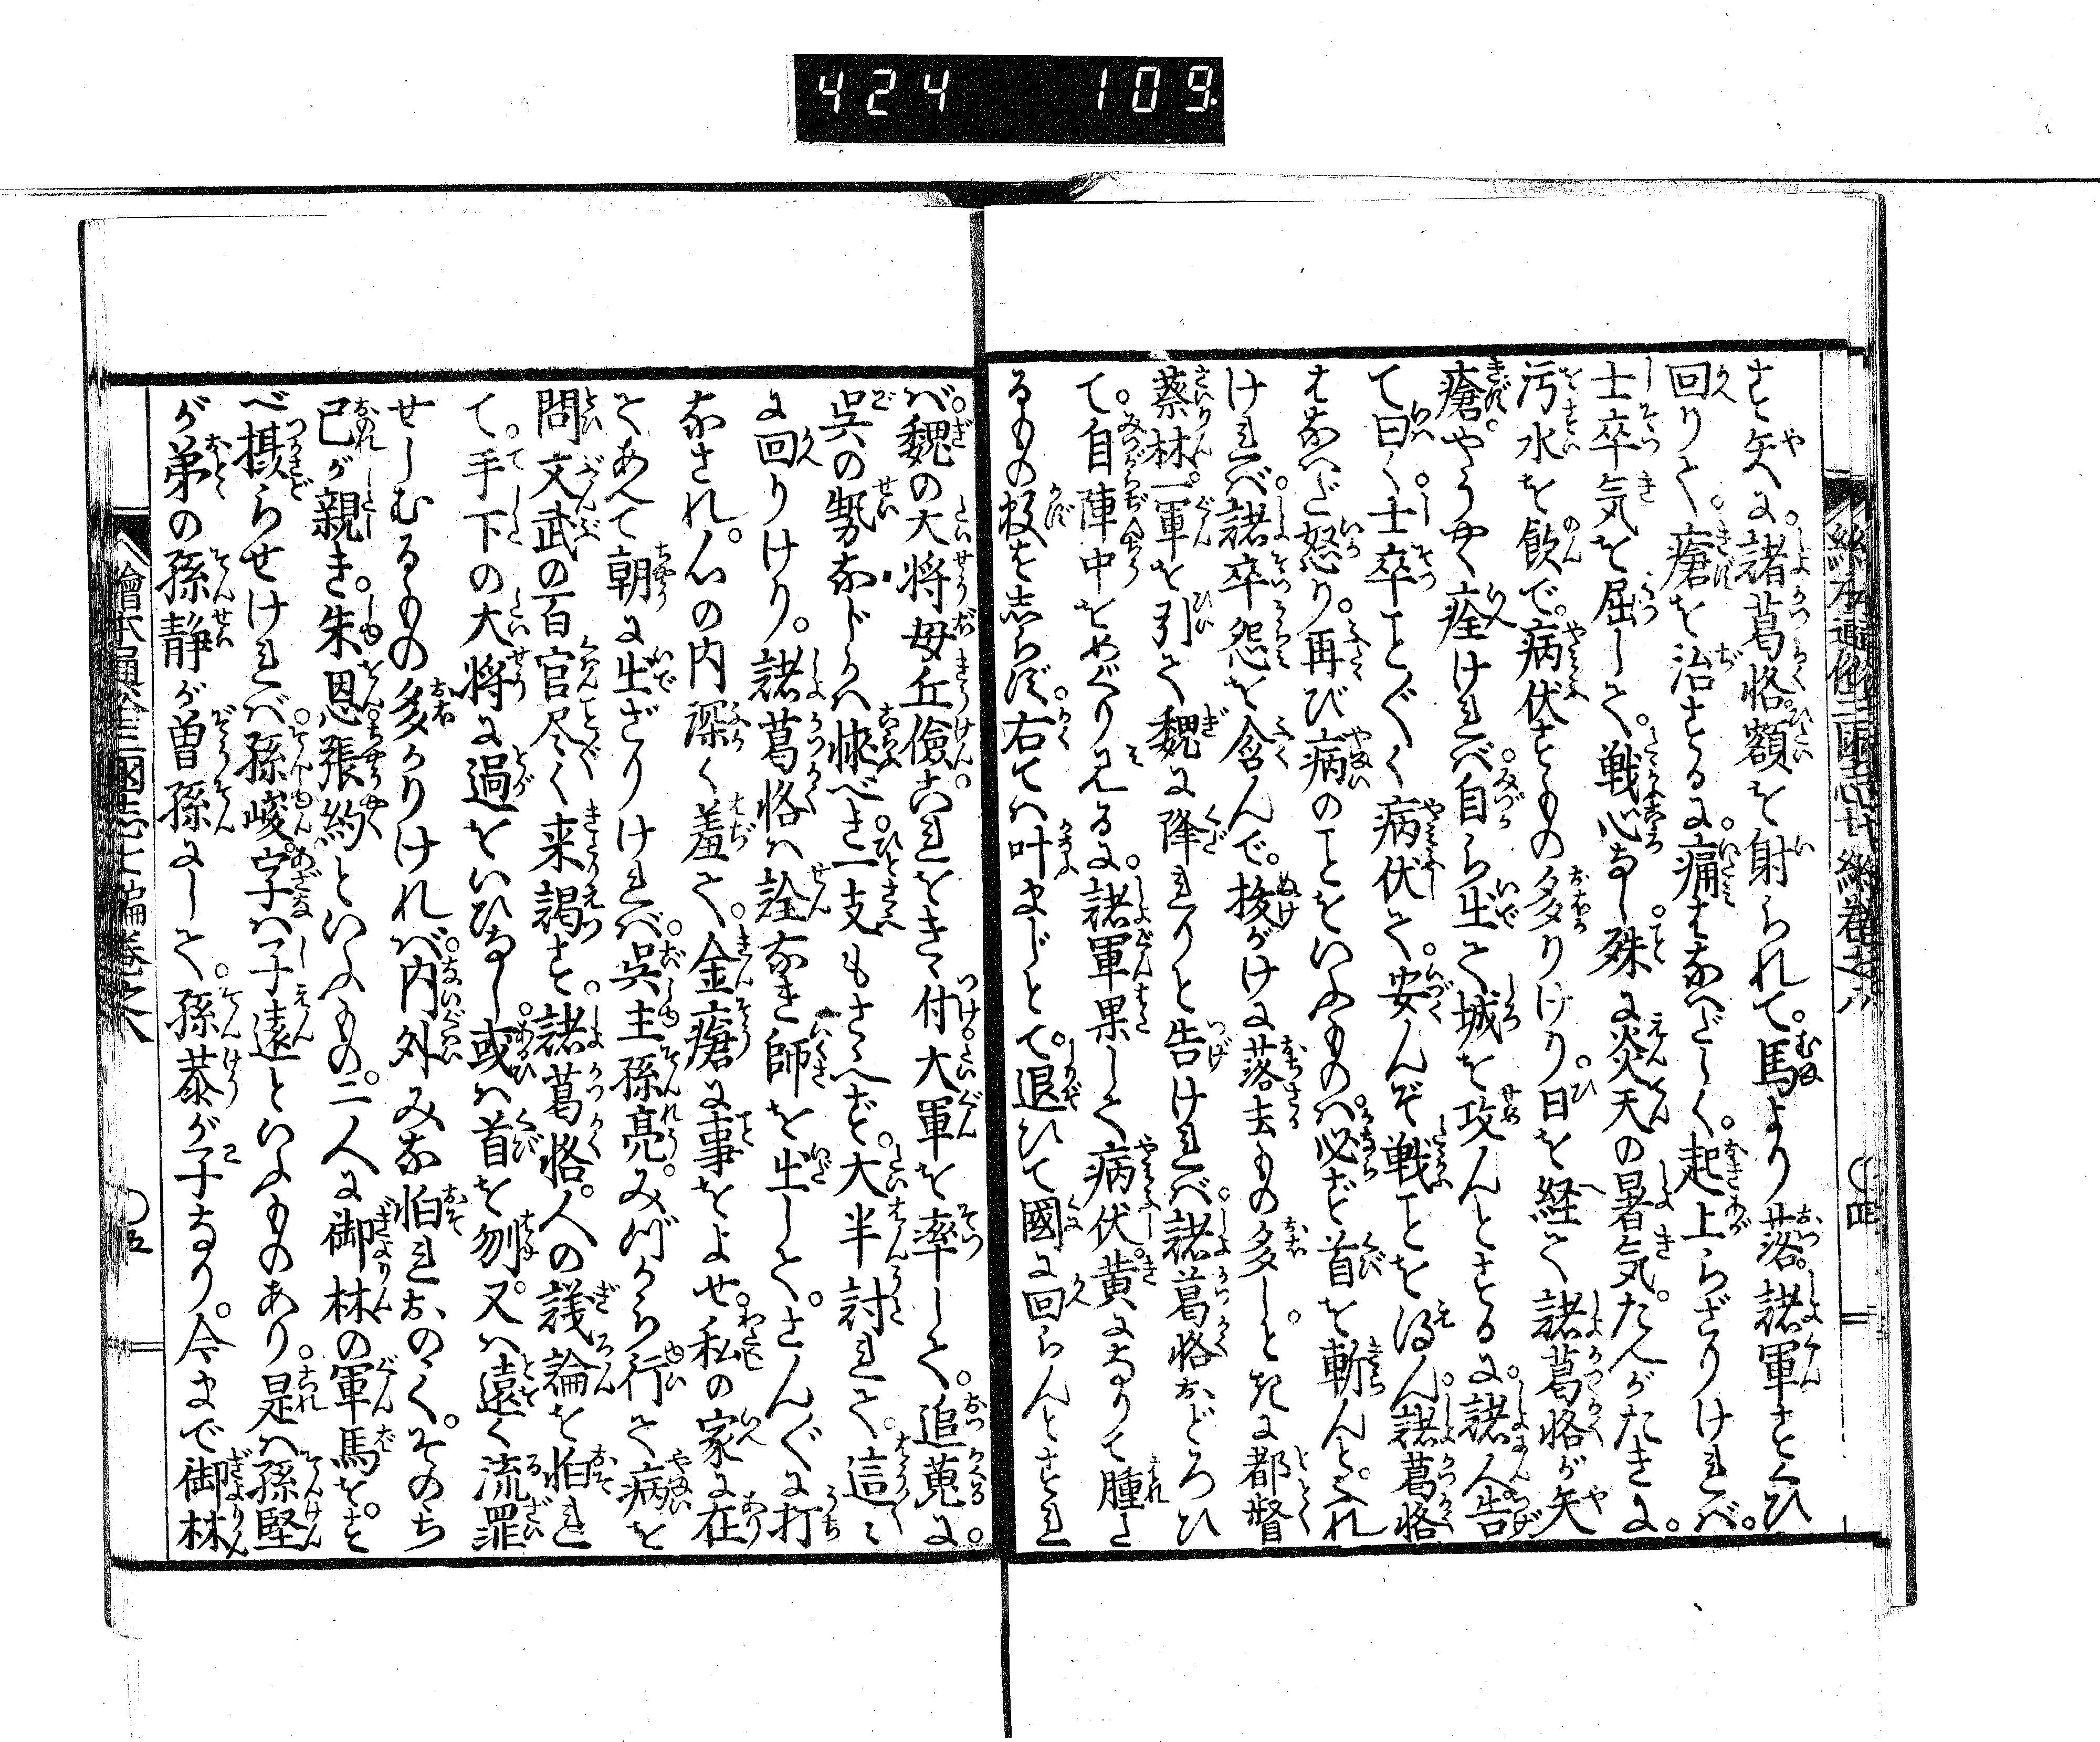 424 109
す矢に諸葛恪額を射られて。馬より落。諸軍すくひ
回りて。瘡を治するに。痛たへがたく。起上らざりければ。
士卒気を屈して。戦心なし殊に炎天の暑気たへがたきに。
汚水を飲で。病伏すもの多かりけり日を経て諸葛恪が矢
瘡。やうやく痊ければ自ら出て城を攻んとするに。諸人告
て曰く。士卒ことごとく病伏て。安んぞ戦ことを得ん。諸葛恪
たへず怒り。再び病のことをいふものハ必ず首を斬んとふれ
ければ。諸卒怨を含んで。抜がけに落去もの多し。ときに都督
蔡林一軍を引て魏に降れりと告ければ。諸葛恪おどろひ
て。自陣中をめぐり見るに。諸軍果して病伏黄になりて腫た
るもの数をしらず。右てハ叶まじとて。退ひて國に回らんとすれ
バ。魏の大将毋丘儉これをきゝ付大軍を率して。追蒐に。
呉の勢なじかハ悚べき。一支もさゝへず。大半討れて。這ミ
に回りけり。諸葛恪ハ詮なき師を出して。さんざんに打
なされ。心の内深く羞て。金瘡に事をよせ。私の家に在
てあへて朝に出ざりければ。呉主孫亮。みづから行て病を
問文武の百官尽く来謁す。諸葛恪人の議論を怕れ
て。手下の大将に過をいひなし。或ハ首を刎。又ハ遠く流罪
せしむるもの多かりけれバ。内外みな怕れおのゝく。そのゝち
己が親き。朱恩張約といふもの。二人に御林の軍馬を。す
べ掫らせければ。孫峻。字ハ子遠といふものあり。是ハ孫堅
が弟の孫静が曽孫にして。孫恭が子なり。今まで御林
繪本通俗三國志七編巻之八
〇四
〇五